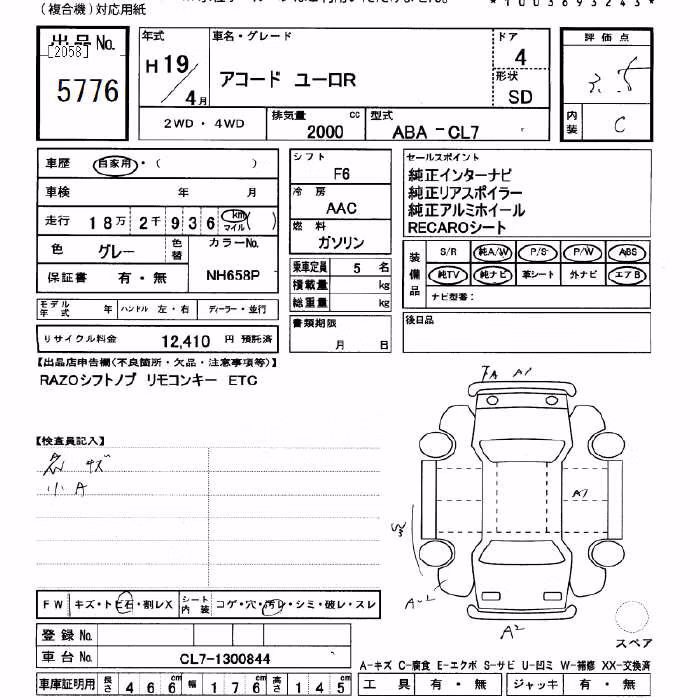 (複合機)対応用紙
*1003693243*
出品No.
[2058]
5776
年式
H19/4月
車名・グレード
アコード ユーロR
ドア
4
形状
SD
評価点
3.5
内装
C
2WD・4WD
排気量
2000 cc
型式
ABA-CL7
車歴 自家用・( )
車検 年 月
走行 18万2千936 km マイル ( )
色 グレー 色替 カラーNo.
NH658P
保証書 有・無
モデル年式 年 ハンドル 左・右 ディーラー・並行
リサイクル料金 12,410 円 預託済
シフト
F6
冷房
AAC
燃料
ガソリン
乗車定員 5 名
積載量 kg
総重量 kg
書類期限
月 日
セールスポイント
純正インターナビ
純正リアスポイラー
純正アルミホイール
RECAROシート
装備品
S/R 純A/W P/S P/W ABS
純TV 純ナビ 革シート 外ナビ エアB
ナビ型番:
後日品
【出品店申告欄(不良箇所・欠品・注意事項等)】
RAZOシフトノブ リモコンキー ETC
【検査員記入】
キズ
小A
A1
A1
W3
A-2
A2
スペア
FW キズ・トビ石・割レX シート内装 コゲ・穴・汚レ・シミ・破レ・スレ
登録No.
車台No. CL7-1300844
車庫証明用 長さ 466 幅 176 高さ 145
A-キズ C-腐食 E-エクボ S-サビ U-凹ミ W-補修 XX-交換済
工具 有・無 ジャッキ 有・無